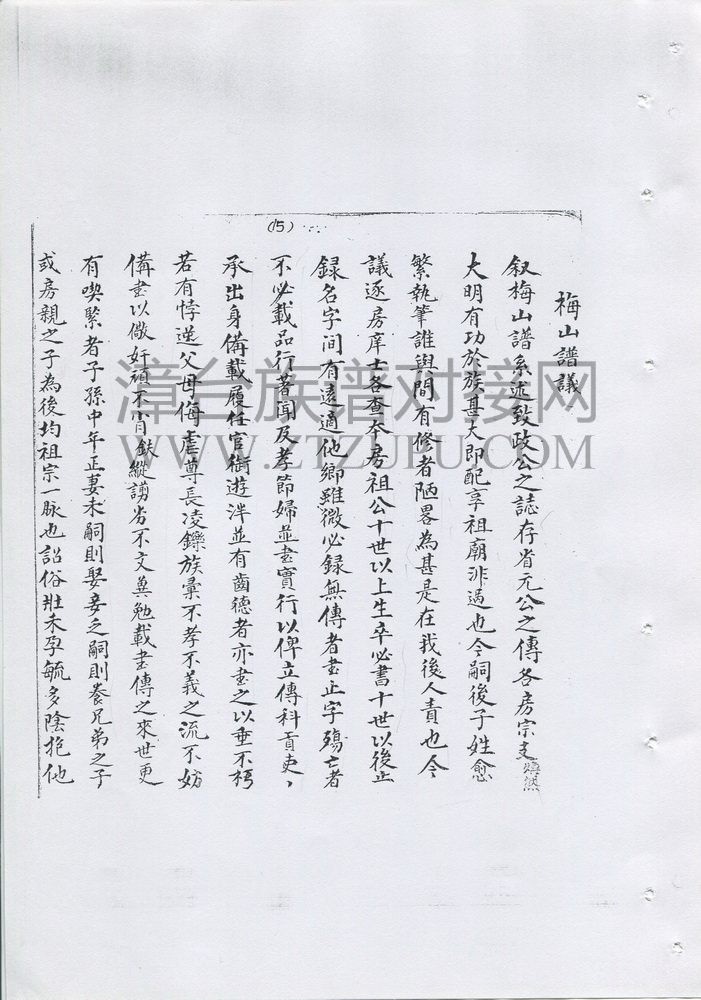 (15)
梅山譜議
叙梅山譜系述致政公之誌存省元公之傳各房宗支煥然
大明有功於族甚大即配享祖廟非過也今嗣後子姓愈
繁執筆誰與間有修者陋畧為甚是在我後人責也今
議逐房庠士各查本房祖公十世以上生卒必書十世以後止
録名字間有遠適他鄉雖微必録無傳者書止字殤亡者
不必載品行著聞及孝節婦並書實行以俾立傳科貢吏、
承出身備載履任官銜遊泮並有齒德者亦書之以垂不朽
若有悖逆父母侮虐尊長凌鑠族彙不孝不義之流不妨
備書以儆奸頑不肖縱謭劣不文冀勉載書傳之來世更
有喫緊者子孫中年正妻未嗣則娶妾乏嗣則養兄弟之子
或房親之子為後均祖宗一脉也詔俗壯未孕毓多陰抱他
漳台族谱对接网
WWW.ZTZUPU.COM